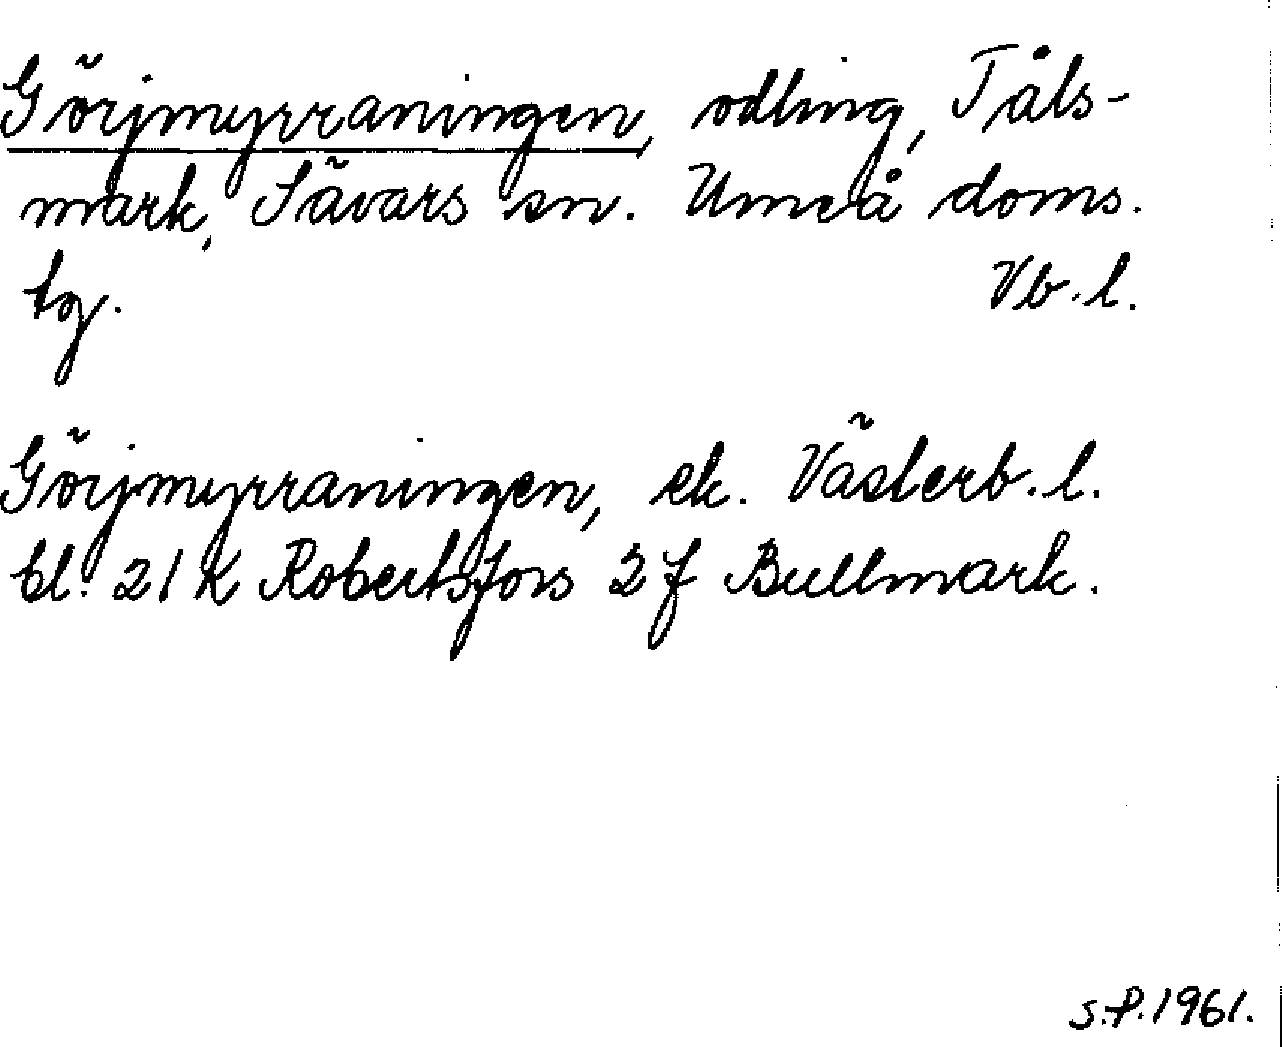 Görjmyrraningen, odling, Tåls-
mark, Sävars sn. Umeå doms.
tg. Vb.l.
Görjmyrraningen, ek. Västerb.l.
bl. 21 K Robertsfors 2f Bullmark.
S.P.1961.